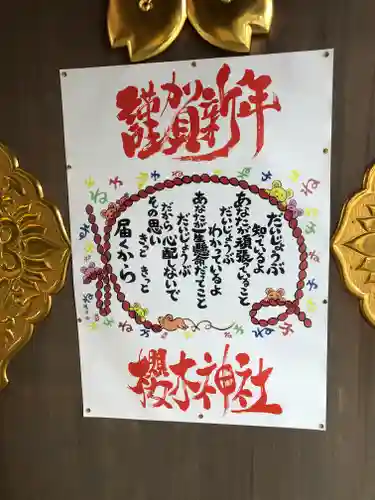 謹賀新年
だいじょうぶ
知ているよ
あなたが頑張ていること
だいじょうぶ
わかっているよ
あなたが一生懸命だてこと
だいじょうぶ
だから心配ないで
その思い
きっと きっと
届くから
櫻木神社